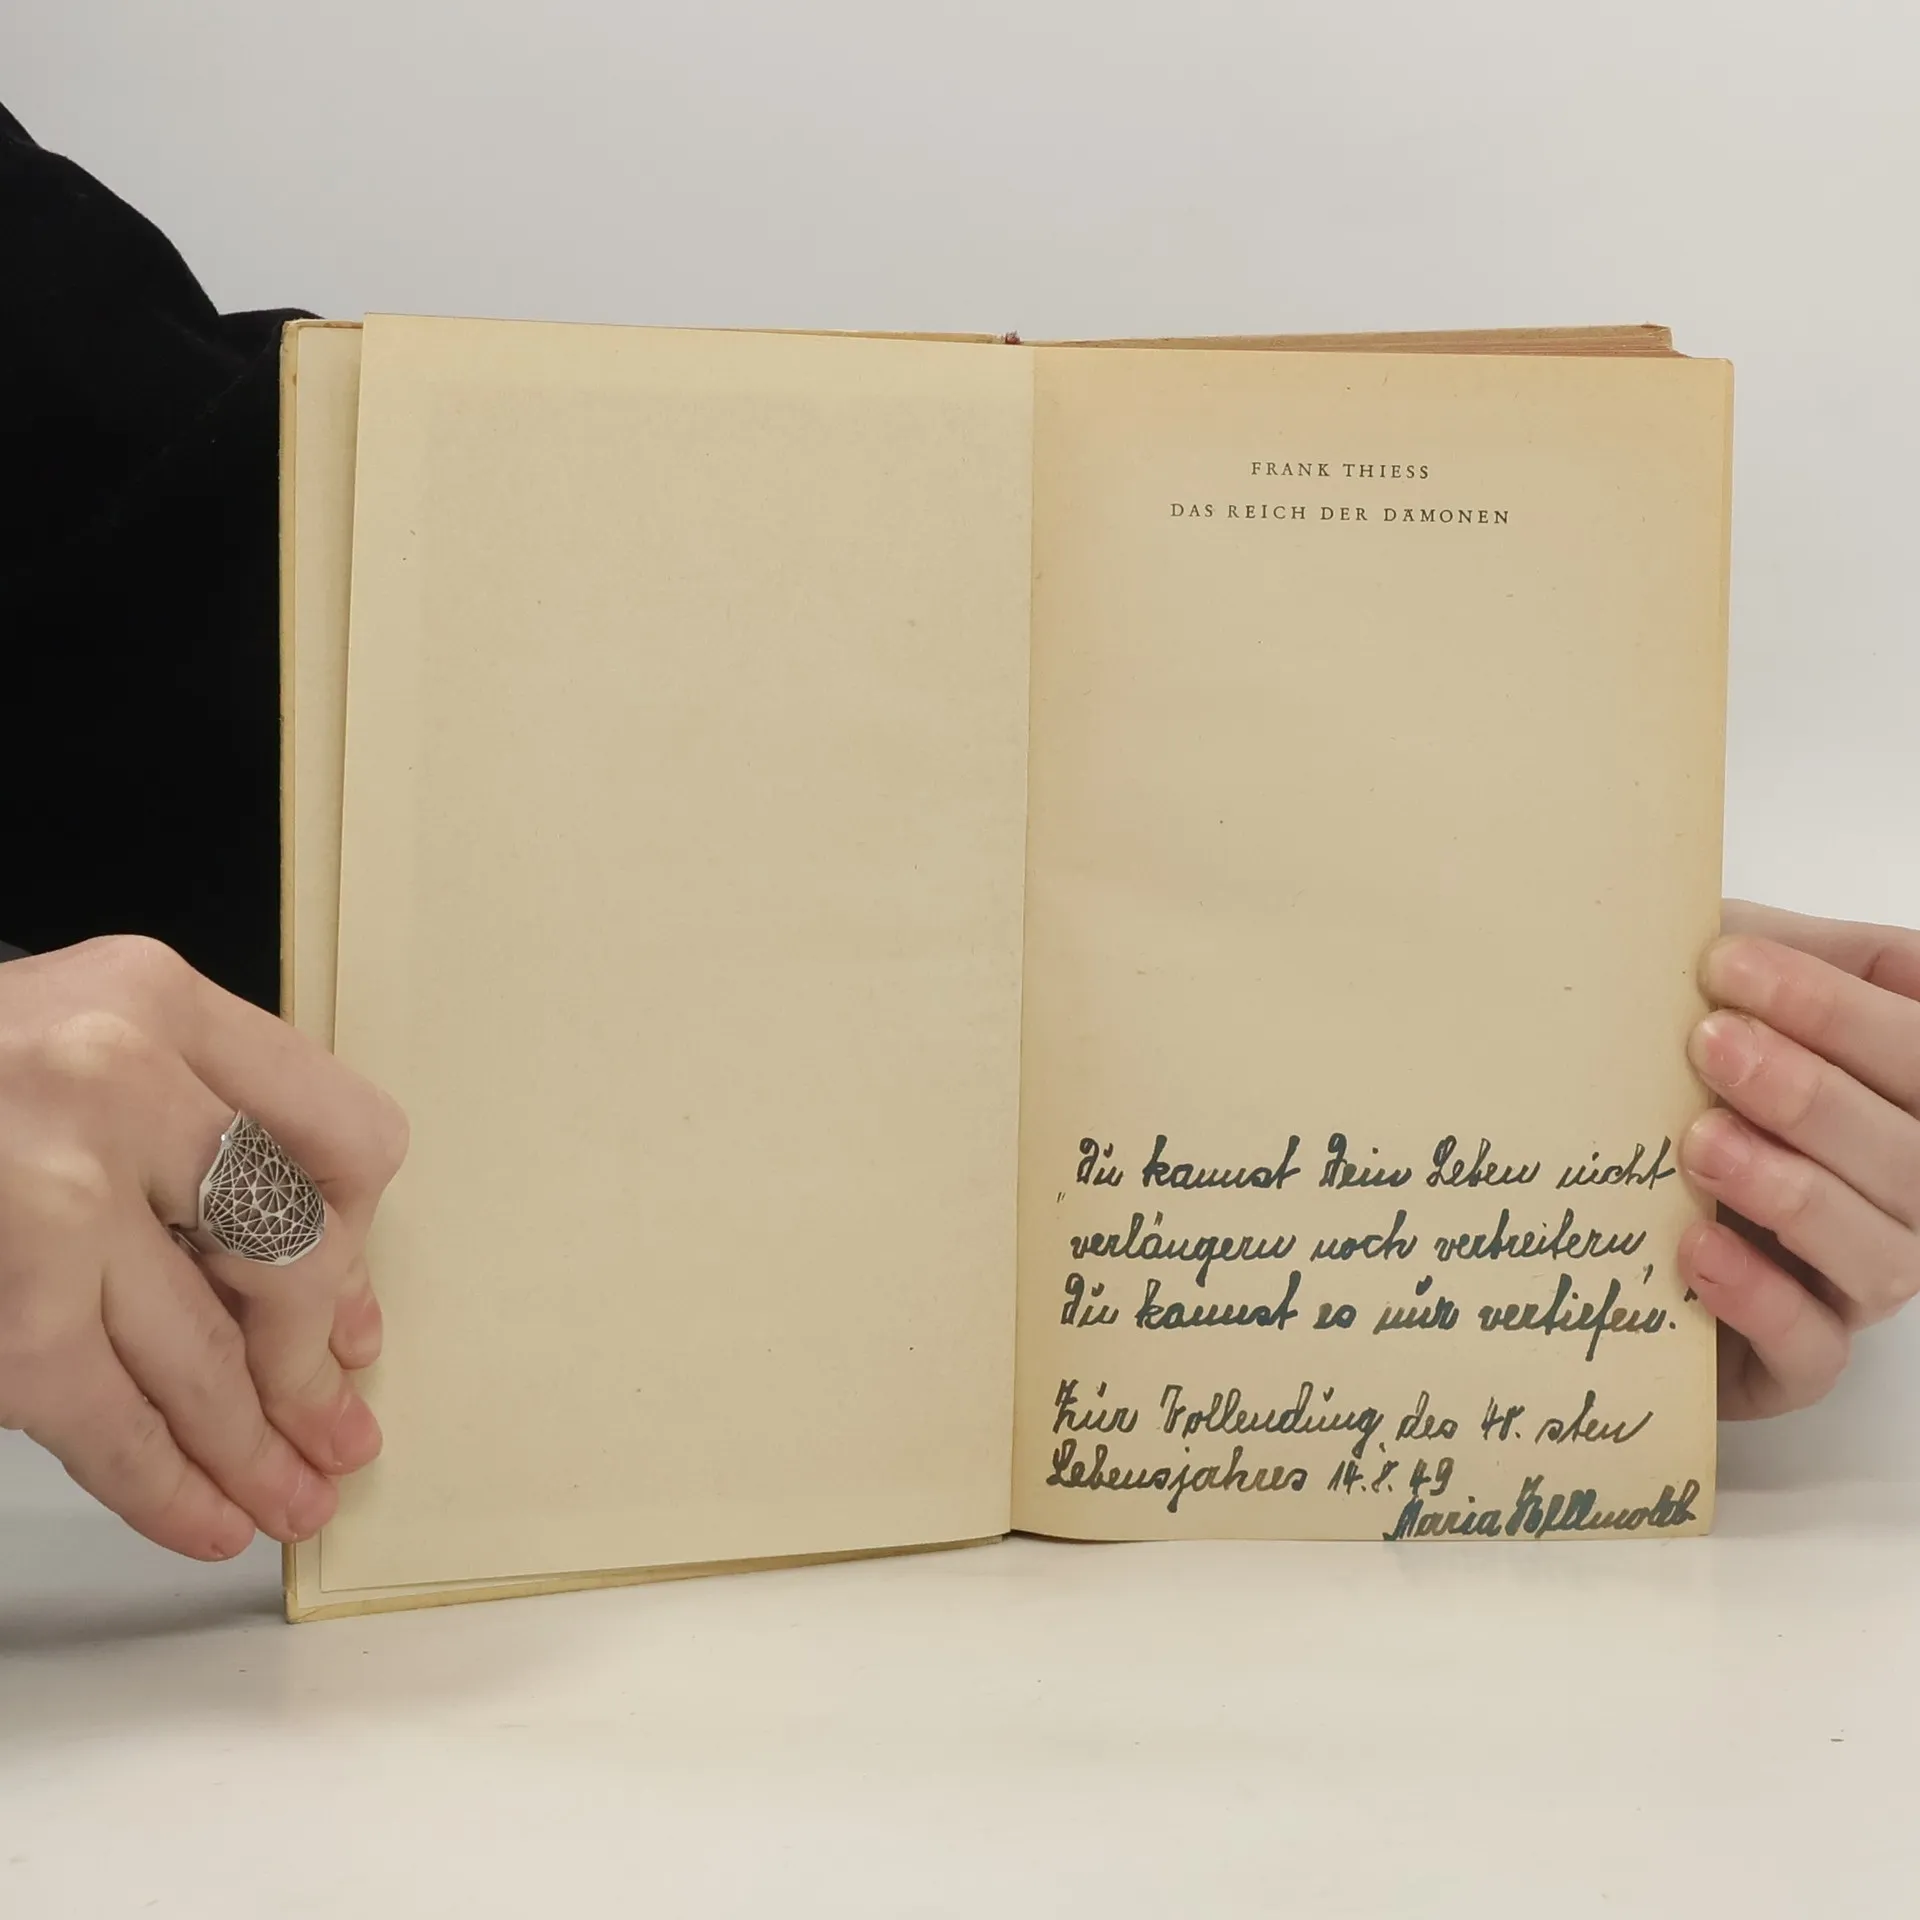 FRANK THIESS
DAS REICH DER DÄMONEN
„Du kannst Dein Leben nicht
verlängern noch verbreitern,
Du kannst es nur vertiefen."
Zur Vollendung des 48. sten
Lebensjahres 14.8.49
Maria